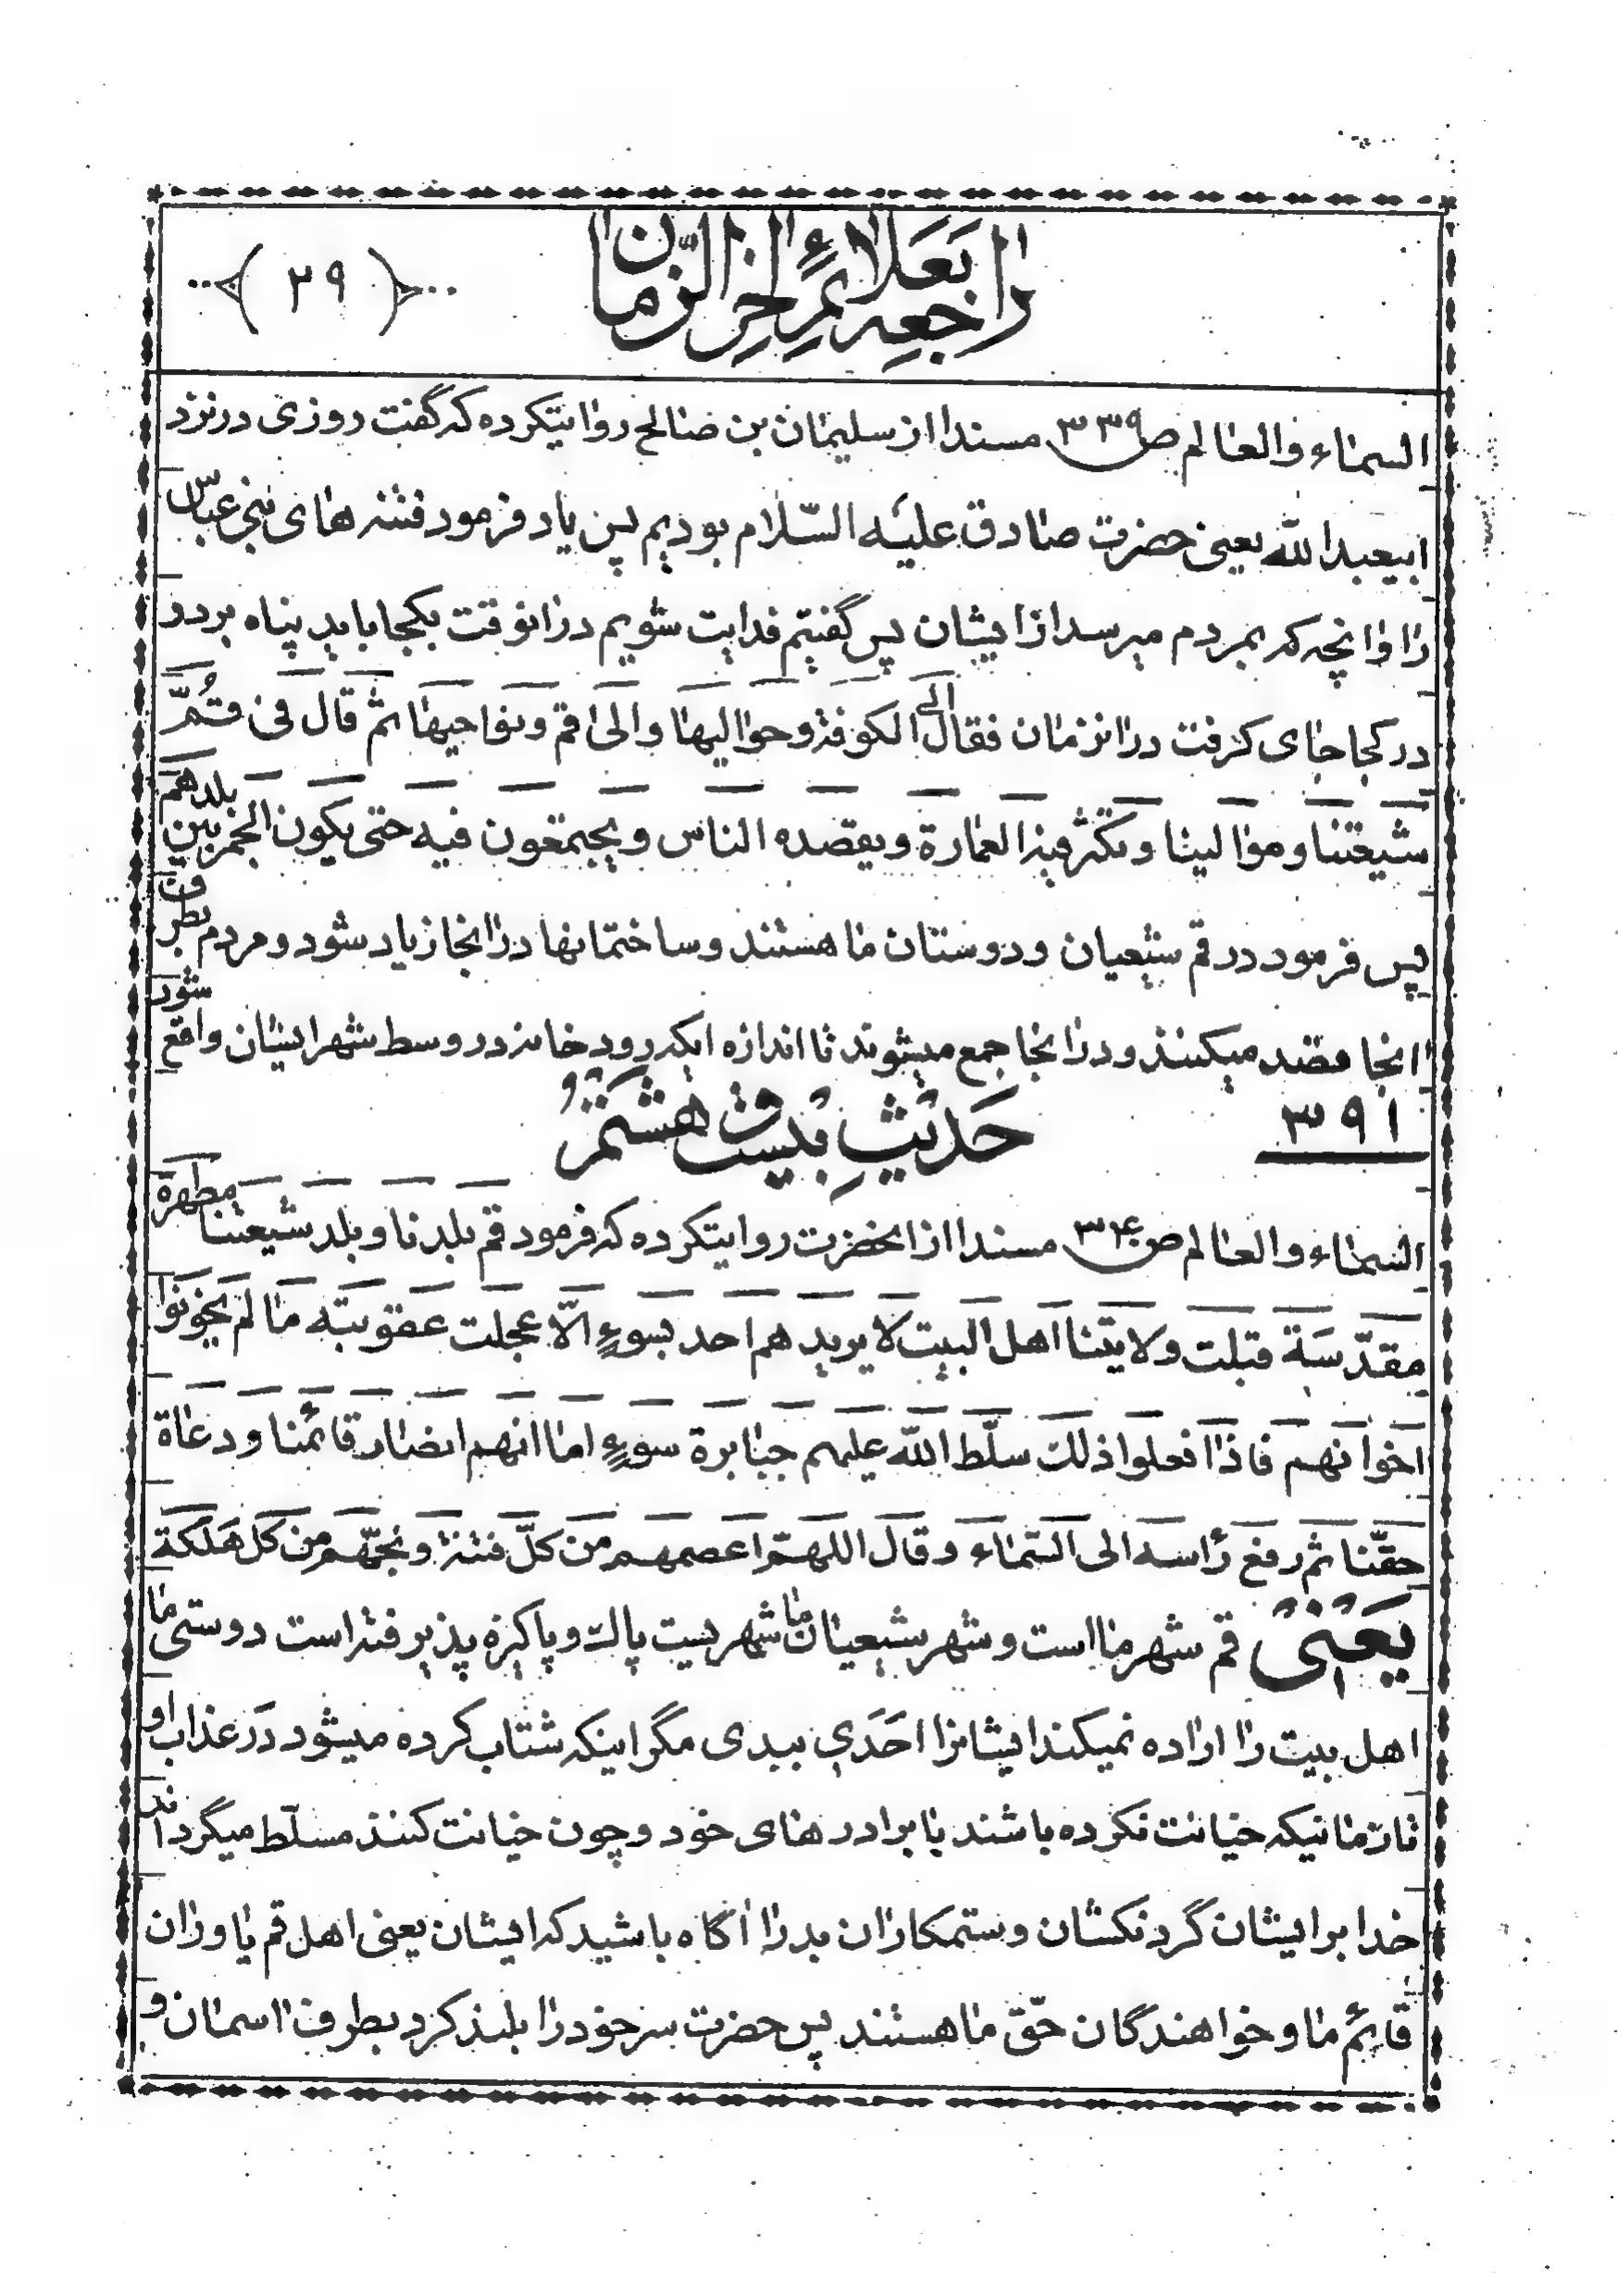 راجعه بعلائم اخر الزّمان
(۲۹)
السماء والعالم ص۳۳۹ مسندا از سلیمان بن صالح روایتکرده که گفت روزی در نزد
ابیعبدالله یعنی حضرت صادق علیه السّلام بودیم پس یاد فرمود فتنه های بنی عباس
را وانچه که بمردم میرسد از ایشان پس گفتم فدایت شویم درانوقت بکجا باید پناه برد در
در کجا جای گرفت درانزمان فقال الی الکوفة وحوالیها والی قم ونواحیها ثم قال فی قُمّ
شیعتنا وموالینا وتکثر فیه العمارة ویقصده الناس ویجتمعون فیه حتی یکون الجمر بین بلدهم
پس فرمود در قم شیعیان ودوستان ما هستند وساختمانها درانجا زیاد شود ومردم بطرف
انجا قصد میکنند ودرانجا جمع میشوند تا اندازه ایکه رودخانه در وسط شهر ایشان واقع شود
۳۹۱ حَدیثِ بیست و هشتم
السماء والعالم ص۳۴۰ مسندا ازانحضرت روایتکرده که فرمود قم بلدنا وبلد شیعتنا مطهرة
مقدّسَة قبلت ولایتنا اهل البیت لا یرید هم احد بسوءٍ الّا عجلت عقوبته ما لم یخونوا
اخوانهم فاذا فعلوا ذلک سلّط الله علیهم جبابرة سوءٍ اما انهم انصار قائمنا ودعاة
حقّنا ثم رفع رأسه الی السّماء وقال اللهمّ اعصمهم من کلّ فتنة ونجّهم من کل هَلَکَة
یَعنی قم شهر ما است وشهر شیعیان ما شهریست پاک وپاکیزه پذیرفته است دوستی ما
اهل بیت را اراده نمیکند ایشانرا احَدَی ببدی مگر اینکه شتاب کرده میشود در عذاب او
تا زمانیکه خیانت نکرده باشند با برادرهای خود وچون خیانت کنند مسلّط میگرداند
خدا بر ایشان گردنکشان وستمکاران بدرا اگاه باشید که ایشان یعنی اهل قم یاوران
قائم ما وخواهندگان حقّ ما هستند پس حضرت سر خود را بلند کرد بطرف اسمان و